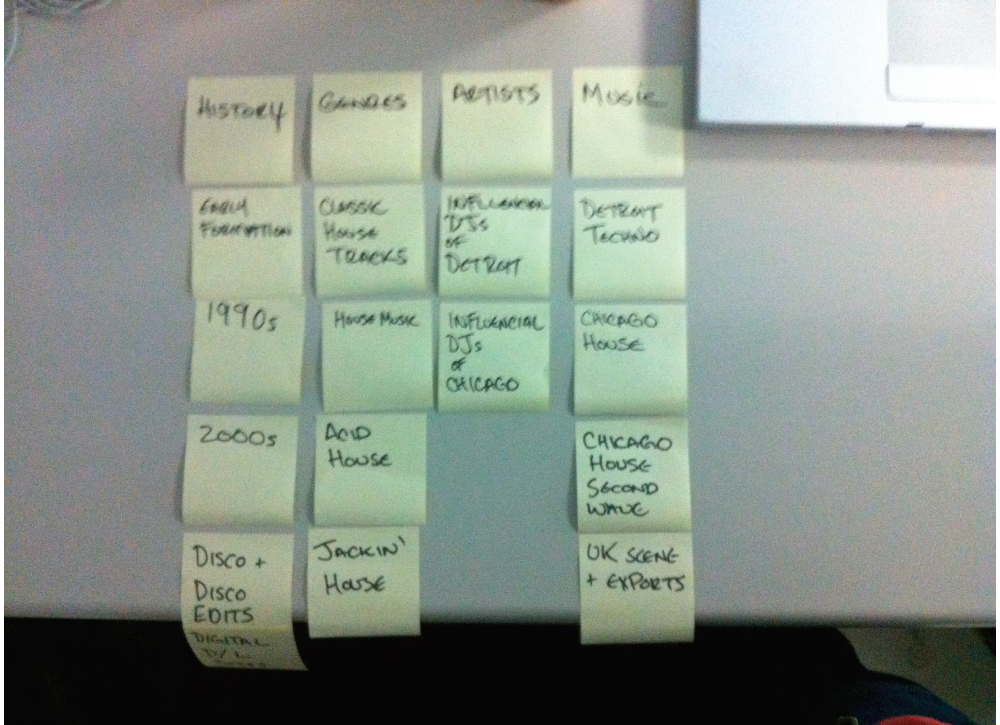 HISTORY
EARLY
FORMATION
1990s
2000s
DISCO +
DISCO
EDITS
DIGITAL
D/L
GENRES
CLASSIC
HOUSE
TRACKS
HOUSE MUSIC
ACID
HOUSE
JACKIN'
HOUSE
ARTISTS
INFLUENCIAL
DJs
OF
DETROIT
INFLUENCIAL
DJs
OF
CHICAGO
MUSIC
DETROIT
TECHNO
CHICAGO
HOUSE
CHICAGO
HOUSE
SECOND
WAVE
UK SCENE
+ EXPORTS